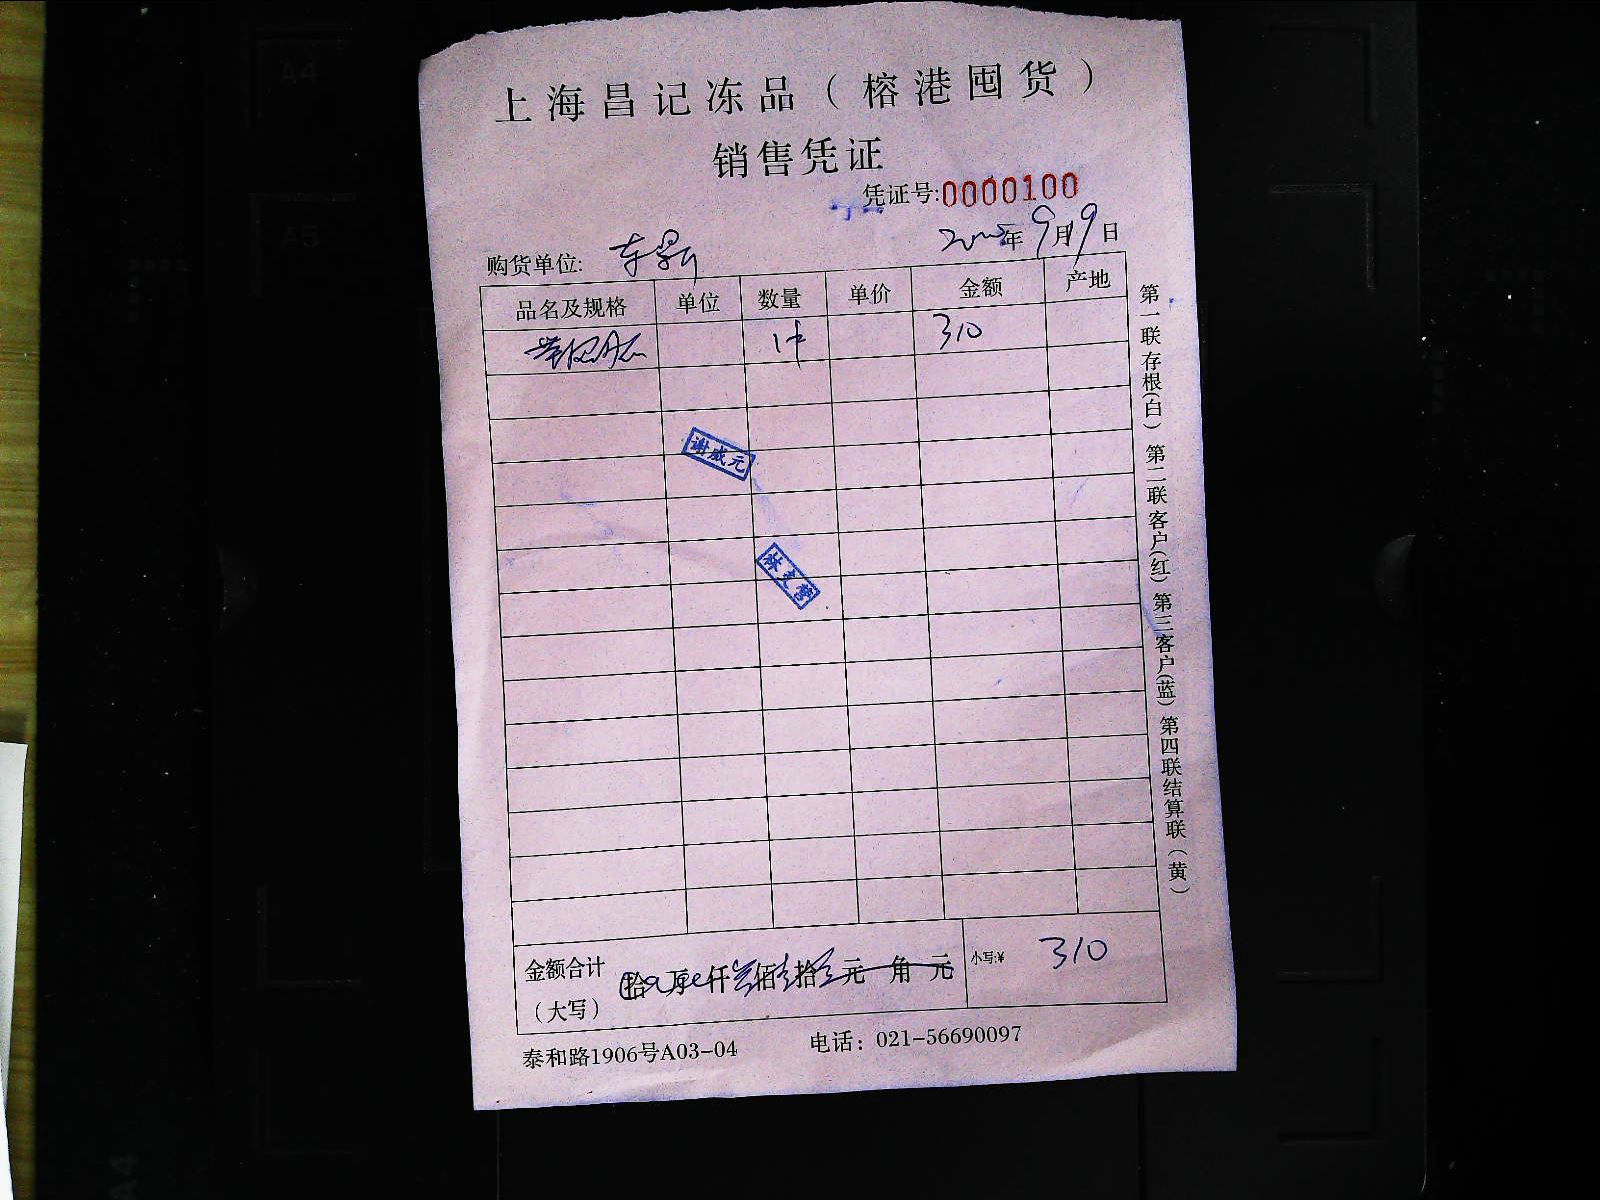 上海昌记冻品（榕港囤货）
销售凭证
凭证号:0000100
年9月9日
购货单位:
品名及规格 单位 数量 单价 金额 产地
1件 310
谢成元
金额合计（大写） 拾 万 仟 叁佰 壹拾 元 角 元 小写:¥ 310
泰和路1906号A03-04 电话：021-56690097
第一联存根（白） 第二联客户（红） 第三客户（蓝） 第四联结算联（黄）
A4
A5